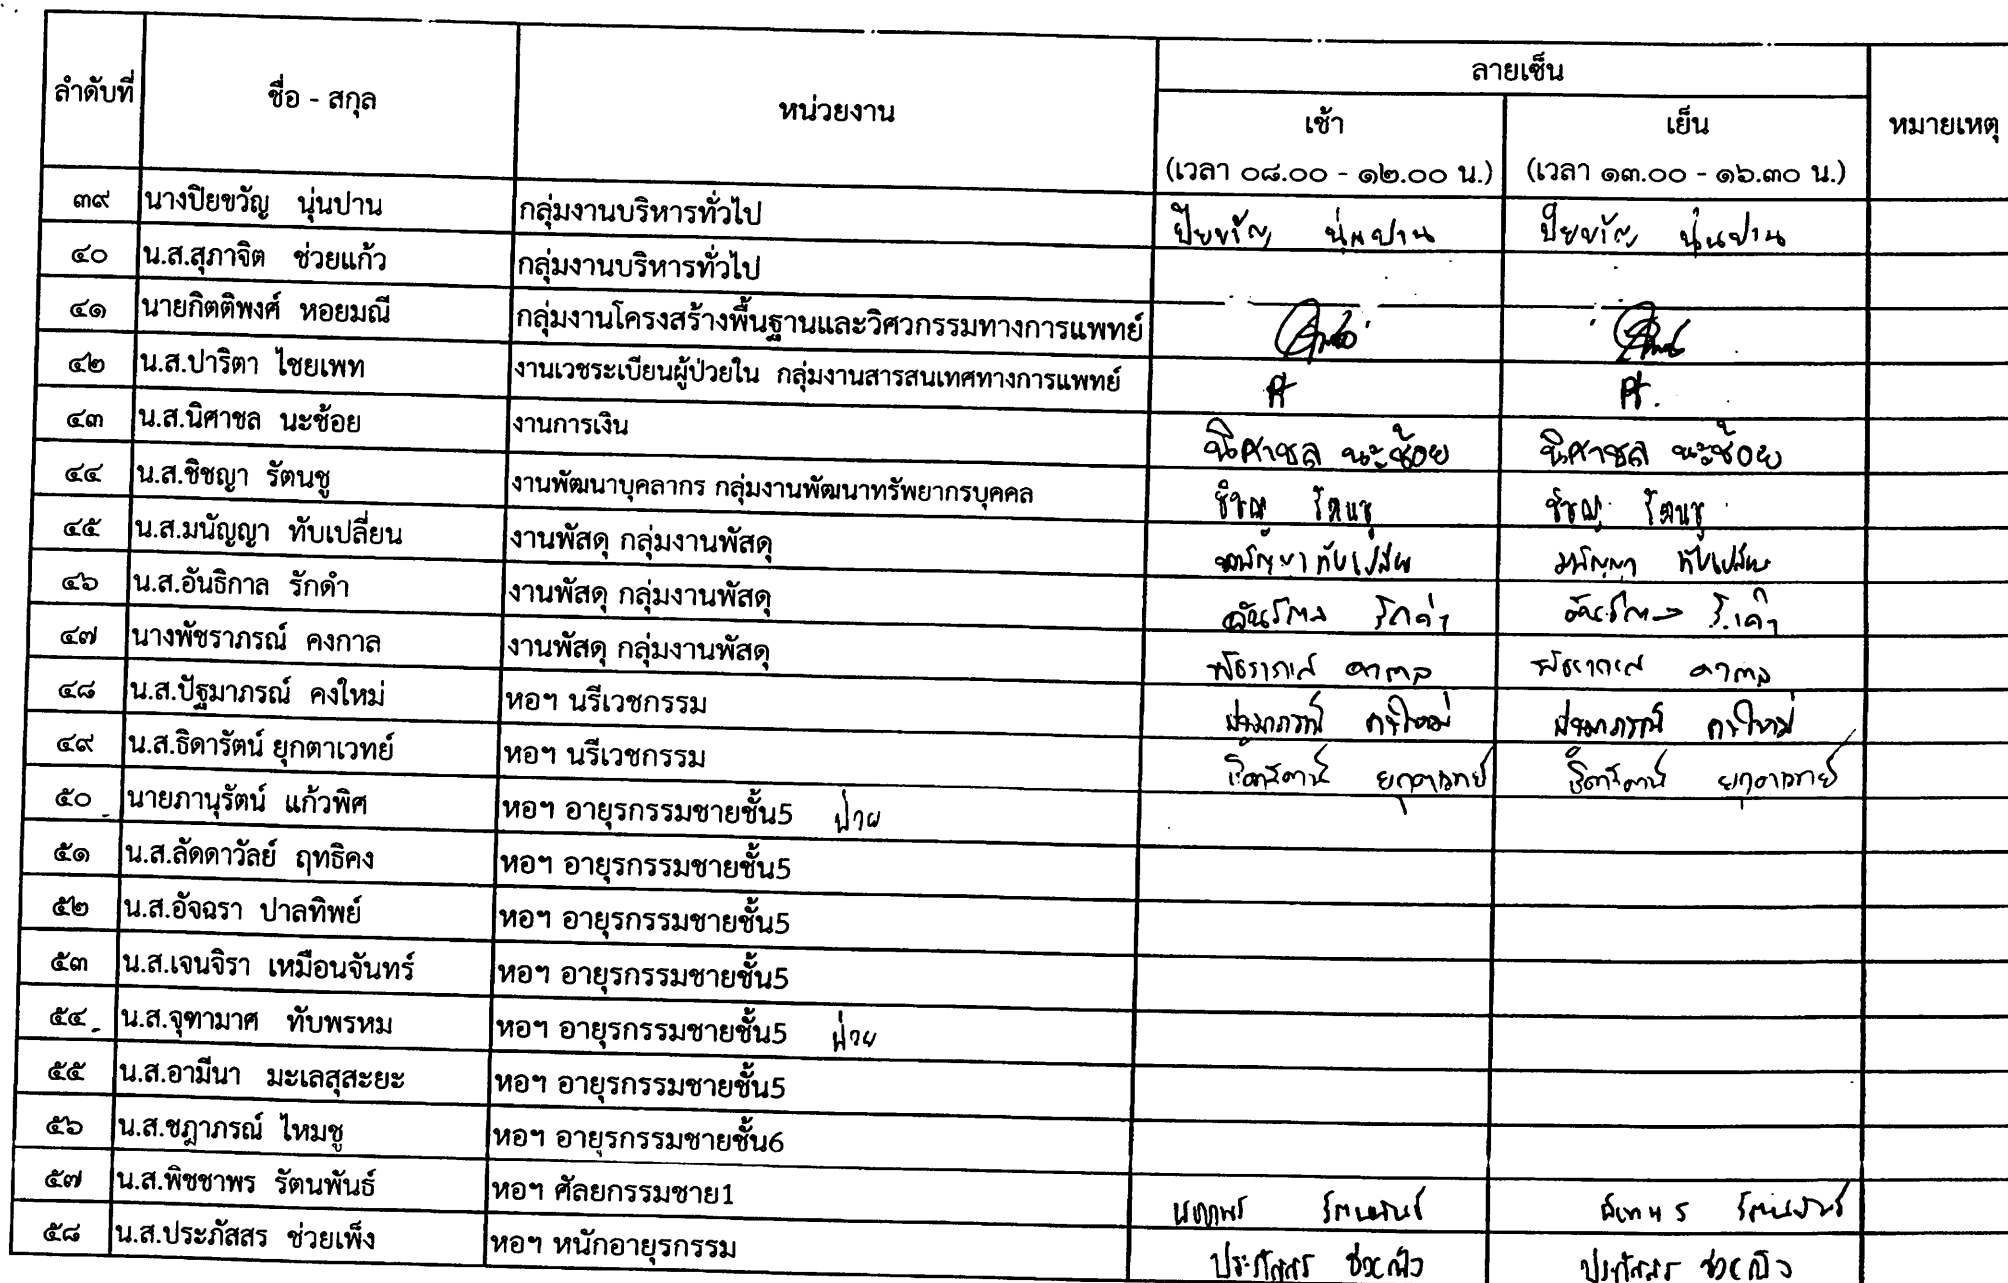 ลำดับที่ ชื่อ - สกุล หน่วยงาน ลายเซ็น หมายเหตุ
เช้า เย็น
(เวลา ๐๘.๐๐ - ๑๒.๐๐ น.) (เวลา ๑๓.๐๐ - ๑๖.๓๐ น.)
๓๙ นางปิยขวัญ นุ่นปาน กลุ่มงานบริหารทั่วไป ปิยขวัญ นุ่นปาน ปิยขวัญ นุ่นปาน
๔๐ น.ส.สุภาจิต ช่วยแก้ว กลุ่มงานบริหารทั่วไป
๔๑ นายกิตติพงศ์ หอยมณี กลุ่มงานโครงสร้างพื้นฐานและวิศวกรรมทางการแพทย์
๔๒ น.ส.ปาริตา ไชยเพท งานเวชระเบียนผู้ป่วยใน กลุ่มงานสารสนเทศทางการแพทย์
๔๓ น.ส.นิศาชล นะช้อย งานการเงิน นิศาชล นะช้อย นิศาชล นะช้อย
๔๔ น.ส.ชิชญา รัตนชู งานพัฒนาบุคลากร กลุ่มงานพัฒนาทรัพยากรบุคคล รัตนชู รัตนชู
๔๕ น.ส.มนัญญา ทับเปลี่ยน งานพัสดุ กลุ่มงานพัสดุ มนัญญา ทับเปลี่ยน มนัญญา ทับเปลี่ยน
๔๖ น.ส.อันธิกาล รักดำ งานพัสดุ กลุ่มงานพัสดุ อันธิกาล รักดำ อันธิกาล รักดำ
๔๗ นางพัชราภรณ์ คงกาล งานพัสดุ กลุ่มงานพัสดุ พัชราภรณ์ คงกาล พัชราภรณ์ คงกาล
๔๘ น.ส.ปัฐมาภรณ์ คงใหม่ หอฯ นรีเวชกรรม ปัฐมาภรณ์ คงใหม่ ปัฐมาภรณ์ คงใหม่
๔๙ น.ส.ธิดารัตน์ ยุกตาเวทย์ หอฯ นรีเวชกรรม ธิดารัตน์ ยุกตาเวทย์ ธิดารัตน์ ยุกตาเวทย์
๕๐ นายภานุรัตน์ แก้วพิศ หอฯ อายุรกรรมชายชั้น5 ป่วย
๕๑ น.ส.ลัดดาวัลย์ ฤทธิคง หอฯ อายุรกรรมชายชั้น5
๕๒ น.ส.อัจฉรา ปาลทิพย์ หอฯ อายุรกรรมชายชั้น5
๕๓ น.ส.เจนจิรา เหมือนจันทร์ หอฯ อายุรกรรมชายชั้น5
๕๔ น.ส.จุฑามาศ ทับพรหม หอฯ อายุรกรรมชายชั้น5 ป่วย
๕๕ น.ส.อามีนา มะเลสุสะยะ หอฯ อายุรกรรมชายชั้น5
๕๖ น.ส.ชฎาภรณ์ ไหมชู หอฯ อายุรกรรมชายชั้น6
๕๗ น.ส.พิชชาพร รัตนพันธ์ หอฯ ศัลยกรรมชาย1 รัตนพันธ์ รัตนพันธ์
๕๘ น.ส.ประภัสสร ช่วยเพ็ง หอฯ หนักอายุรกรรม ประภัสสร ช่วยเพ็ง ประภัสสร ช่วยเพ็ง